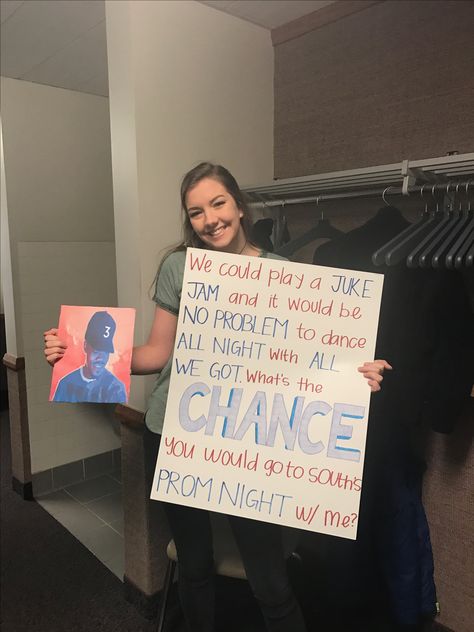 3
We could play a JUKE
JAM and it would be
NO PROBLEM to dance
ALL NIGHT with ALL
WE GOT. What's the
CHANCE
you would go to South's
PROM NIGHT w/ me?